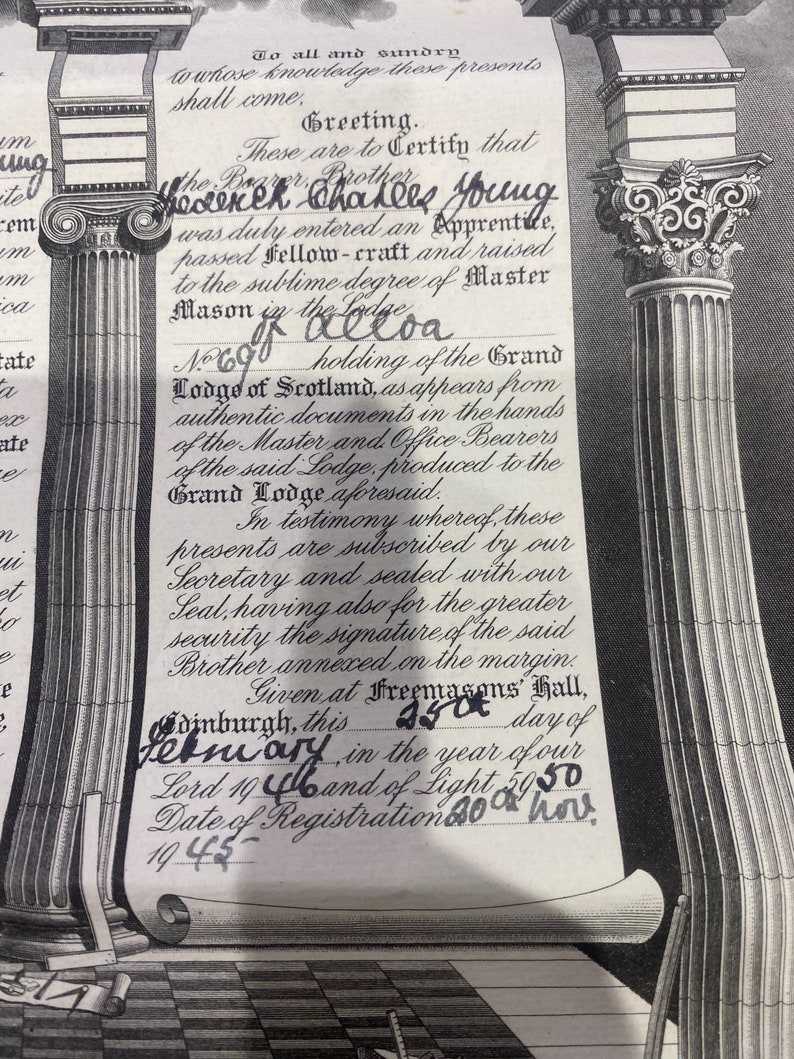 To all and sundry
to whose knowledge these presents
shall come,
Greeting.
These are to Certify that
the Bearer, Brother
Frederick Charles Young
was duly entered an Apprentice,
passed Fellow-craft and raised
to the sublime degree of Master
Mason in the Lodge
of Alloa
No. 69 holding of the Grand
Lodge of Scotland, as appears from
authentic documents in the hands
of the Master and Office Bearers
of the said Lodge, produced to the
Grand Lodge aforesaid.
In testimony whereof, these
presents are subscribed by our
Secretary and sealed with our
Seal, having also for the greater
security the signature of the said
Brother annexed on the margin.
Given at Freemasons' Hall,
Edinburgh, this 25th day of
February, in the year of our
Lord 1946 and of Light 5950
Date of Registration 20th Nov.
1945